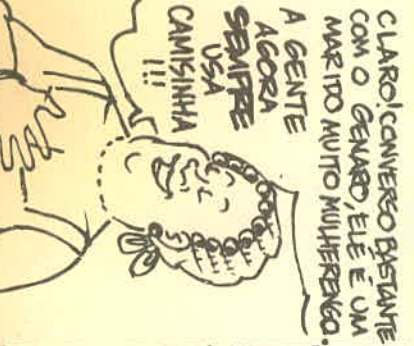 CLARO! CONVERSO BASTANTE
COM O GENARO, ELE É UM
MARIDO MUITO MULHERENGO.
A GENTE
AGORA
SEMPRE
USA
CAMISINHA
!!!